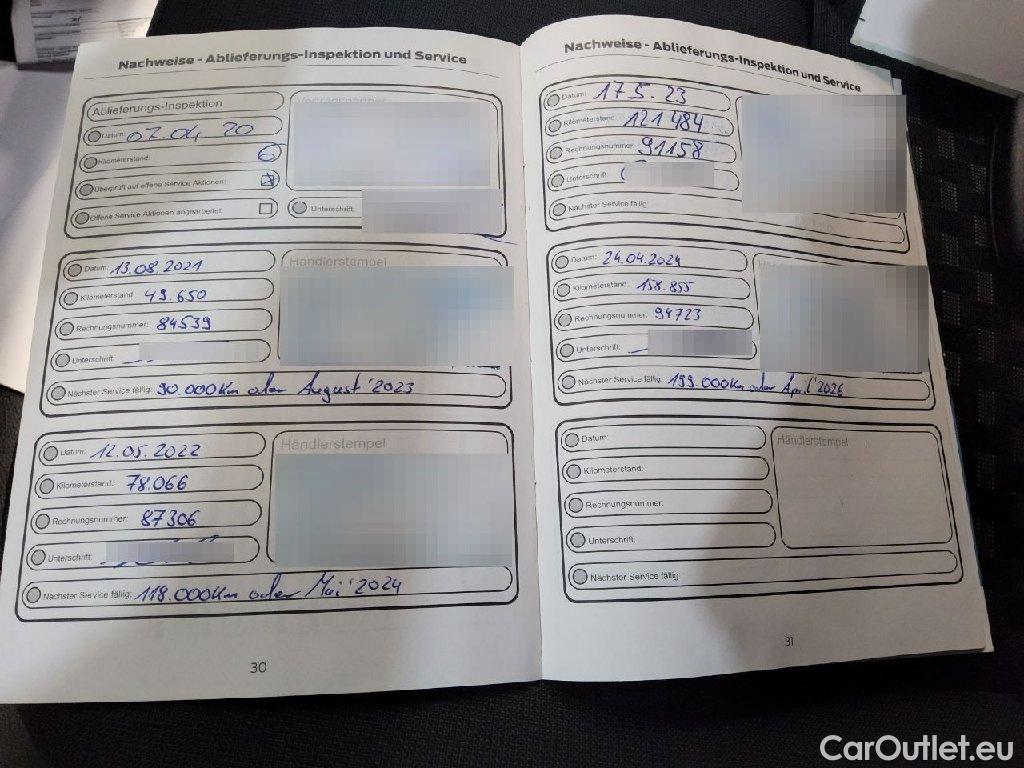 Nachweise - Ablieferungs-Inspektion und Service
Ablieferungs-Inspektion
Datum: 07.04.20
Kilometerstand: 6
Überprüft auf offene Service Aktionen:
Offene Service Aktionen abgearbeitet:
Unterschrift:
Datum: 13.08.2021
Händlerstempel
Kilometerstand: 49.650
Rechnungsnummer: 84539
Unterschrift:
Nächster Service fällig: 90.000Km oder August '2023
Datum: 12.05.2022
Händlerstempel
Kilometerstand: 78.066
Rechnungsnummer: 87306
Unterschrift:
Nächster Service fällig: 118.000Km oder Mai '2024
30
Nachweise - Ablieferungs-Inspektion und Service
Datum: 17.5.23
Kilometerstand: 121 484
Rechnungsnummer: 91158
Unterschrift:
Nächster Service fällig:
Datum: 24.04.2024
Kilometerstand: 158.855
Rechnungsnummer: 94723
Unterschrift:
Nächster Service fällig: 199.000Km oder April '2026
Datum:
Händlerstempel
Kilometerstand:
Rechnungsnummer:
Unterschrift:
Nächster Service fällig:
31
CarOutlet.eu